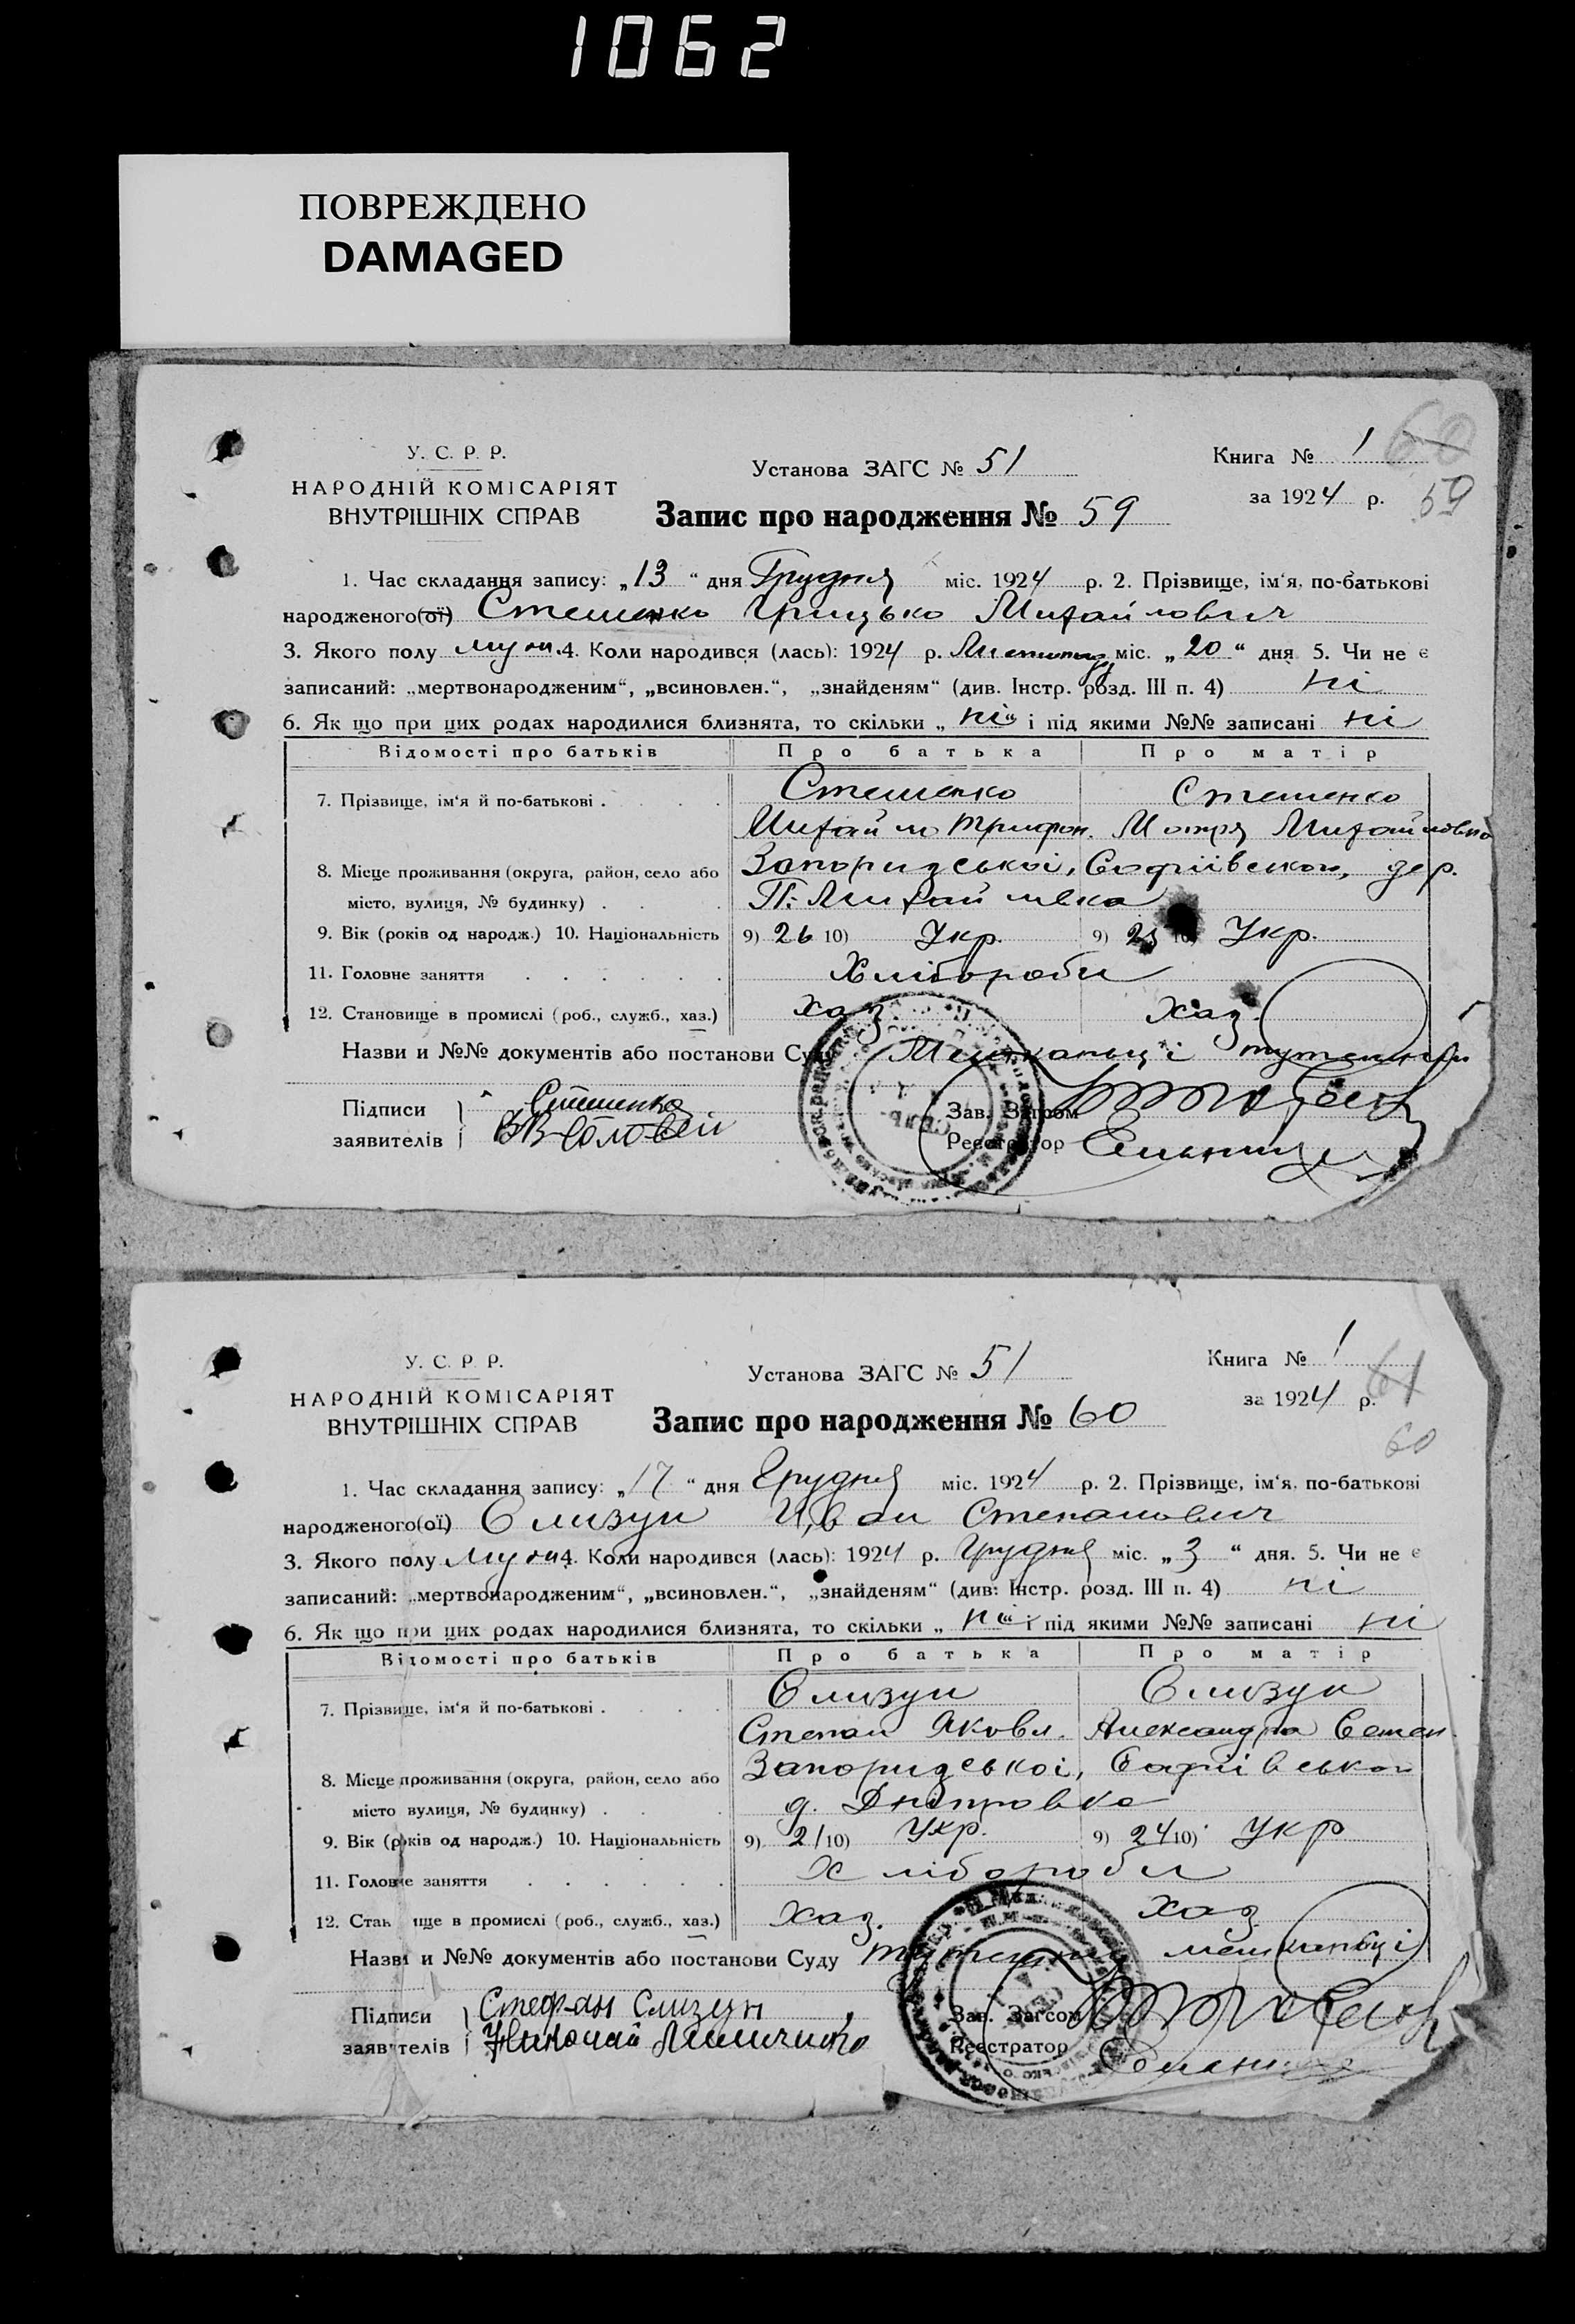 1062
ПОВРЕЖДЕНО
DAMAGED
У. С. Р. Р.
НАРОДНІЙ КОМІСАРІЯТ
ВНУТРІШНІХ СПРАВ
Установа ЗАГС № 51
Запис про народження № 59
Книга № 1
60
за 1924 р.
59
1. Час складання запису: „13“ дня Грудня міс. 1924 р. 2. Прізвище, ім‘я, по-батькові
народженого(ої) Стешенко Грицько Михайлович
3. Якого полу муж. 4. Коли народився (лась): 1924 р. Листопаду міс. „20“ дня 5. Чи не є
записаний: „мертвонародженим“, „всиновлен.“, „знайденям“ (див. Інстр. розд. III п. 4) ні
6. Як що при цих родах народилися близнята, то скільки „ні“ і під якими №№ записані ні
Відомості про батьків Про батька Про матір
7. Прізвище, ім‘я й по-батькові . Стешенко Стешенко
Михайло Трифон. Мотря Михайловна
8. Місце проживання (округа, район, село або Запоризської, Софіївського, дер.
місто, вулиця, № будинку) . П. Михайлівка
9. Вік (років од народж.) 10. Національність 9) 26 10) Укр. 9) 23 10) Укр.
11. Головне заняття Хлібороби
12. Становище в промислі (роб., служб., хаз.) хаз. Хаз.
Назви и №№ документів або постанови Суду Мешканьці тутешні
Підписи Стешенко
заявителів Соловей
Зав. Загсом
Реєстратор
У. С. Р. Р.
НАРОДНІЙ КОМІСАРІЯТ
ВНУТРІШНІХ СПРАВ
Установа ЗАГС № 51
Запис про народження № 60
Книга № 1
за 1924 р.
61
60
1. Час складання запису: „17“ дня Грудня міс. 1924 р. 2. Прізвище, ім‘я, по-батькові
народженого(ої) Слизун Иван Степанович
3. Якого полу муж 4. Коли народився (лась): 1924 р. Грудня міс. „3“ дня. 5. Чи не є
записаний: „мертвонародженим“, „всиновлен.“, „знайденям“ (див: Інстр. розд. III п. 4) ні
6. Як що при цих родах народилися близнята, то скільки „ні“ і під якими №№ записані ні
Відомості про батьків Про батька Про матір
7. Прізвище, ім‘я й по-батькові . Слизун Слизун
Степан Яковл. Александра Семен.
8. Місце проживання (округа, район, село або Запоризської, Софіївського
місто вулиця, № будинку) . д. Дніпровка
9. Вік (років од народж.) 10. Національність 9) 21 10) Укр. 9) 24 10) Укр
11. Головне заняття Хлібороби
12. Становище в промислі (роб., служб., хаз.) Хаз. хаз
Назви и №№ документів або постанови Суду тутешні мешканьці
Підписи Стефан Слизун
заявителів Николай
Зав. Загсом
Реєстратор